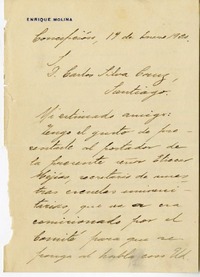 ENRIQUE MOLINA
Concepción, 19 de Enero 920.
S.
D. Carlos Silva Cruz,
Santiago.
Mi estimado amigo:
Tengo el gusto de pre-
sentarle al portador de
la presente señor
Mejías secretario de nues-
tras escuelas universi-
tarias, que va
comisionado por el
Comité para que se
ponga al habla con Ud.